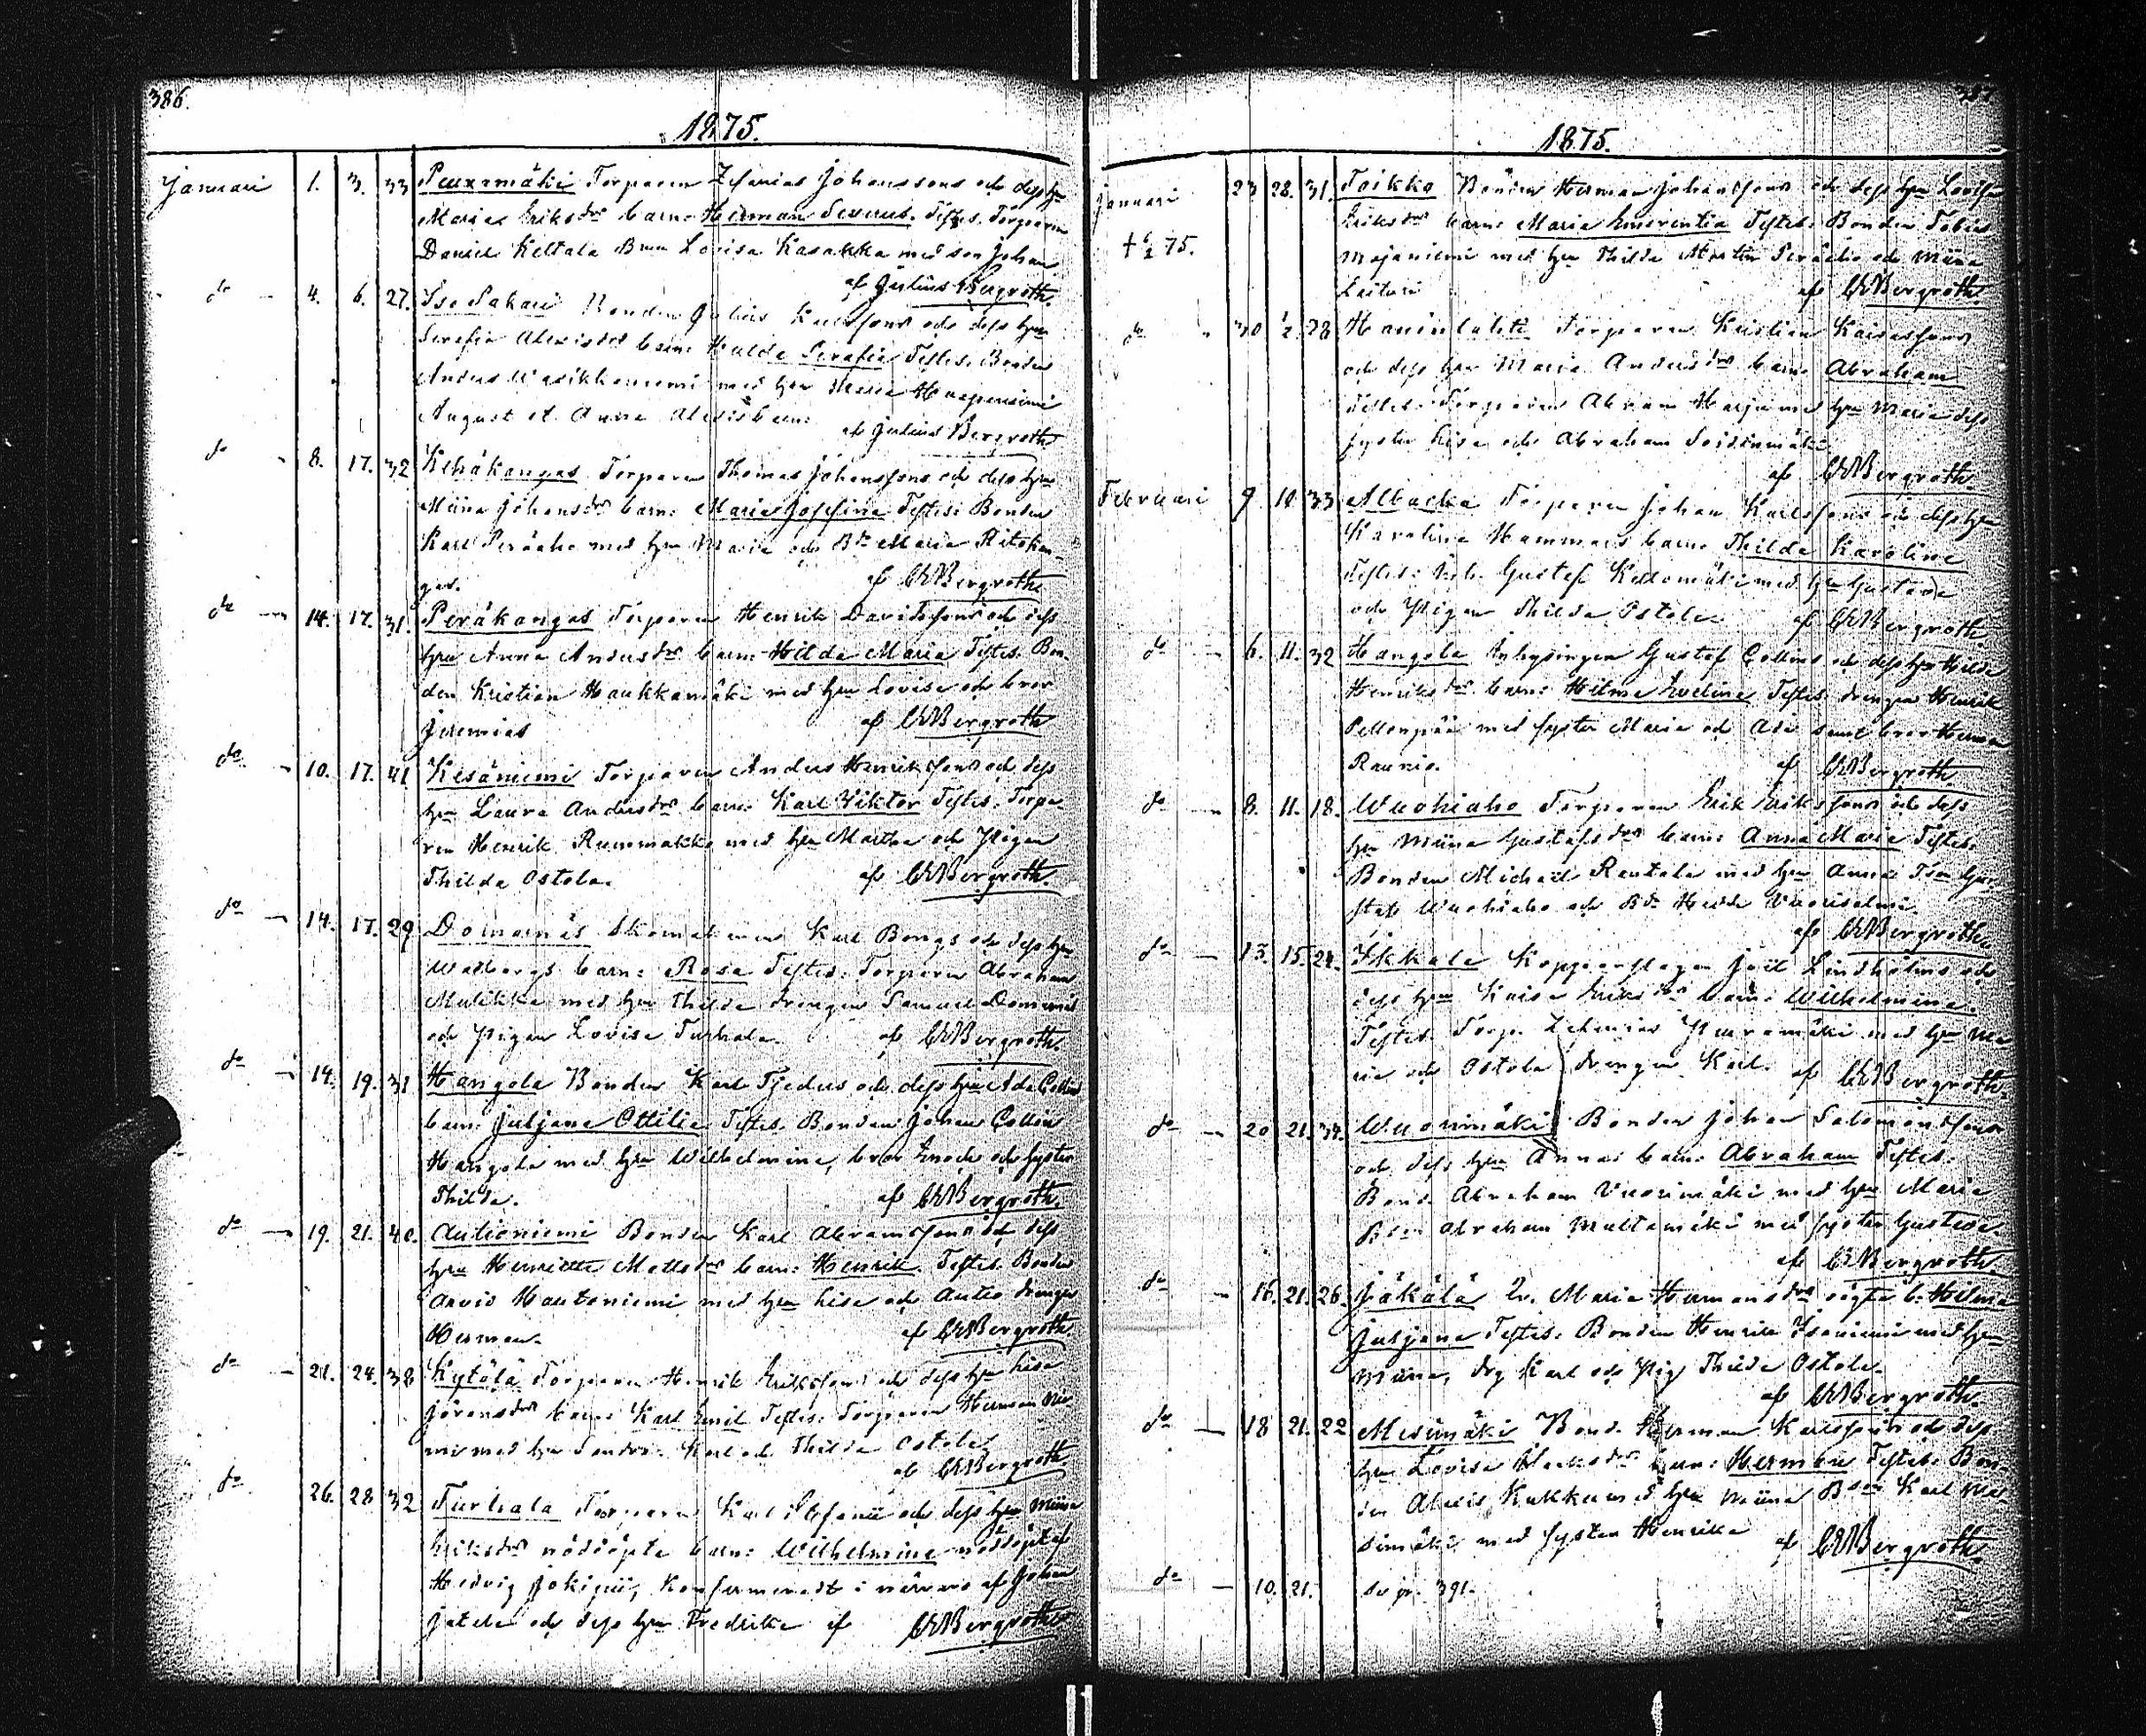 386.
1875.
Januari 1. 3. 33 Puuxamäki Torparen Zefanias Johanssons och dess hu
Marias Eriksdrs barn: Herman Severus. Testes. Torparen
Daniel Keltala Lovisa Kasakka med son Johan
af Julius Bergroth.
do 4. 6. 27. Iso Sakari Bonden Julius Karlssons och dess hu
Serafia Alexisdrs barn: Hulda Serafia Testes. Bonden
Anders med hu Maria Haapaniemi
August et Anna Alexisbarn: af Julius Bergroth
do 8. 17. 32 Torparen Thomas Johanssons och dess hus
Miina Johansdrs barn: Maria Josefina Testes: Bonden
Karl Peräaho med hu Maria och Maria Ritokan-
gas. af CWBergroth
do 14. 17. 31. Peräkangas Torparen Henrik Davidssons och dess
hus Anna Andersdrs barn: Hilda Maria Testes. Bon-
den Kristian Haukkamäki med hu Lovisa och bror
Jeremias af CWBergroth
do 10. 17. 41 Kesäniemi Torparen Anders Henrikssons och dess
hus Laura Andersdrs barn: Karl Viktor Testes. Torpa-
ren Henrik Rummakko med hu Martha och Pigan
Thilda Ostola. af CWBergroth.
do 14. 17. 29 Domarnäs Skomakaren Karl Bongs och dess hus
Walborgs barn: Rosa Testes: Torparen Abraham
Mulikka med hu Thilda drengen Samuel Domarnäs
och Pigan Lovisa Turhala. af CWBergroth.
do 14. 19. 31 Hangola Bonden Karl Tjeders och dess hu Ada Collins
barn: Juljana Ottilia Testes. Bonden Johan Collin
Hangola med hu Wilhelmina, bror Enoch och syster
Thilda. af CWBergroth.
do 19. 21. 40. Autioniemi Bonden Karl Abramssons och dess
hus Henriette Mattsdrs barn: Henrik. Testes. Bonden
Arvid Hautoniemi med hu Lisa och Autio drengen
Herman. af CWBergroth
do 21. 24. 38 Kytölä Torparen Henrik Erikssons och dess hu Lisa
Jöransdrs barn: Karl Emil Testes: Torparen Herman
med hu Karl och Thilda Ostola
af CWBergroth
do 26. 28 32 Turhala Torparen Karl Stefanii och dess hus Miina
Eriksdrs nöddöpta barn: Wilhelmina nöddöpt af
Hedvig Jokipii, konfirmeradt i närvaro af Johan
Jatila och dess hu Fredrika af CWBergroth
387
1875.
Januari 23 28. 31. Toikko Bonden Herman Johanssons och dess hu Lovisa
Eriksdrs barn: Maria Emerentia Testes. Bonden Tobias
† 6/2 75. Majaniemi med hu Thilda Peräaho och Miina
Laituri af CWBergroth
do 30 1/2. 28 Haninlahti Torparen Kristian Kaisassons
och dess hus Maria Andersdrs barn: Abraham
Testes. Torparen Abram Harju med hu Maria dess
syster Lisa och Abraham Soidinmäki
af CWBergroth.
Februari 9. 10. 33 Albacka Torparen Johan Karlssons och dess hu
Karolina Hammars barn: Thilda Karolina
Testes: Inh. Gustaf Keltomäki med hu Gustava
och Pigan Thilda Ostola af CWBergroth
do 6. 11. 32 Hangola Inhysingen Gustaf Collins och dess hu Hilda
Henriksdrs barn: Hilma Evelina Testes. drengen Henrik
Pellonpää med syster Maria och Ada samt bror Herman
Raunio. af CWBergroth
do 8. 11. 18. Wuohiaho Torparen Erik Erikssons och dess
hus Miina Gustafsdrs barn: Anna Maria Testes.
Bonden Michael Rautala med hu Anna Gu-
staf Wuohiaho och Hedda Vuorisalmi.
af CWBergroth
do 13. 15. 24. Ikkala Kopparslagar Joel Lindholms och
dess hus Kaisa Eriksdrs barn: Wilhelmina.
Testes. Torp. Zefanias Puuramäki med hu Ma-
ria och Ostola drengen Karl. af CWBergroth.
do 20 21. 34. Wuorimäki Bonden Johan Salomonssons
och dess hus Annas barn: Abraham Testes:
Bond. Abraham Vuorimäki med hu Maria
Abraham Multamäki med syster Gustava.
af CWBergroth.
do 16. 21. 26. Jäkälä Maria Hermansdrs oägta b. Hilma
Juljana Testes: Bonden Henrik Isoniemi med hu
Miina, drg Karl och Pig Thilda Ostola
af CWBergroth.
do 18 21. 22 Mesimäki Bond. Herman Karlssons och dess
hus Lovisa barn: Herman Testes. Bon-
den Alexis Kukku med hu Miina Karl Me-
simäki med syster Henrika af CWBergroth.
do 10. 21. se p. 391.